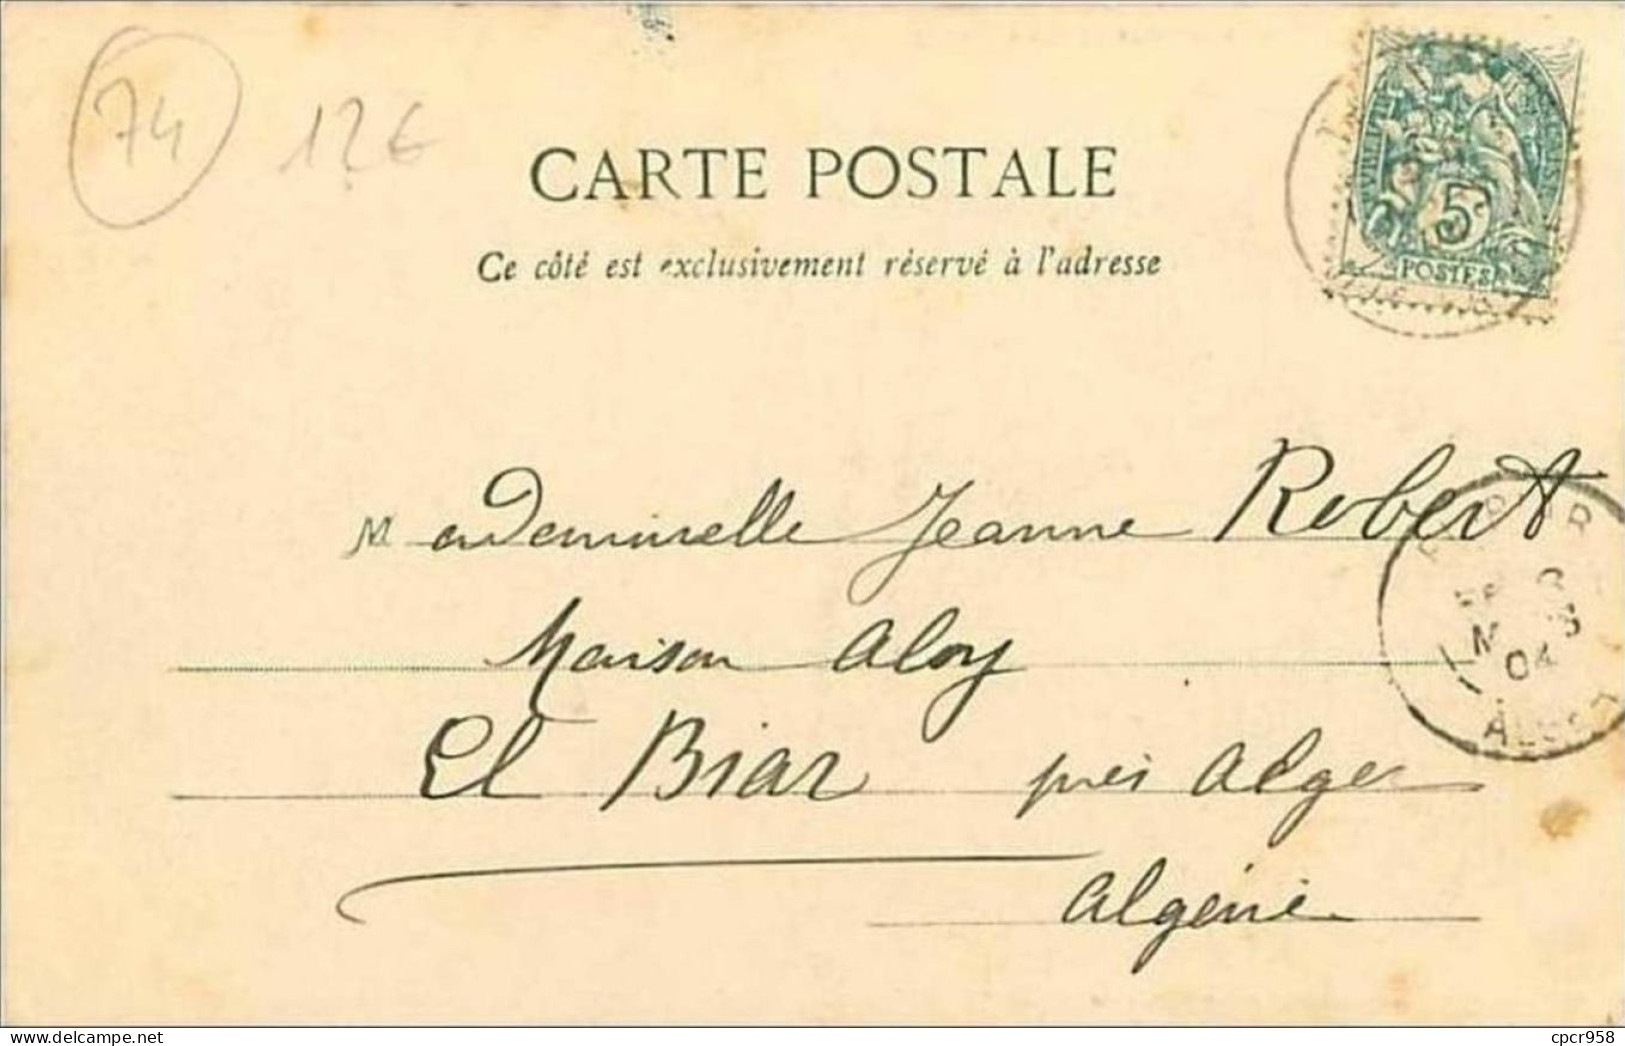 74
12€
CARTE POSTALE
Ce côté est exclusivement réservé à l'adresse
5
POSTES
Mademoiselle Jeanne Robert
Maison Aloy
El Biar près Alger
Algérie
04
ALGER
cpcr958